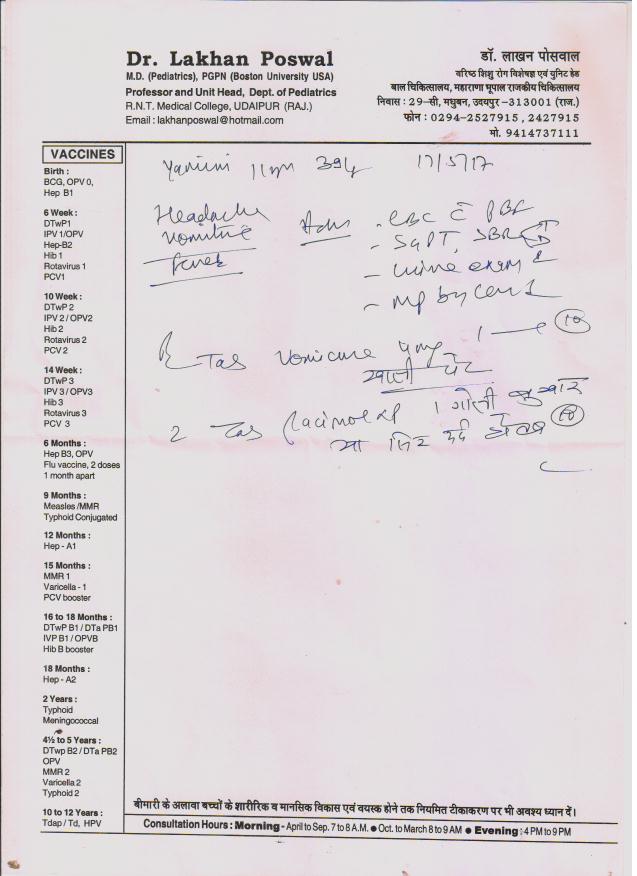 Dr. Lakhan Poswal
M.D. (Pediatrics), PGPN (Boston University USA)
Professor and Unit Head, Dept. of Pediatrics
R.N.T. Medical College, UDAIPUR (RAJ.)
Email : lakhanposwal@hotmail.com
डॉ. लाखन पोसवाल
वरिष्ठ शिशु रोग विशेषज्ञ एवं युनिट हेड
बाल चिकित्सालय, महाराणा भूपाल राजकीय चिकित्सालय
निवास : 29-सी, मधुबन, उदयपुर -313001 (राज.)
फोन : 0294-2527915, 2427915
मो. 9414737111
VACCINES
Birth :
BCG, OPV 0,
Hep B1
6 Week :
DTwP1
IPV 1/OPV
Hep-B2
Hib 1
Rotavirus 1
PCV1
10 Week :
DTwP 2
IPV 2 / OPV2
Hib 2
Rotavirus 2
PCV 2
14 Week :
DTwP 3
IPV 3 / OPV3
Hib 3
Rotavirus 3
PCV 3
6 Months :
Hep B3, OPV
Flu vaccine, 2 doses
1 month apart
9 Months :
Measles /MMR
Typhoid Conjugated
12 Months :
Hep - A1
15 Months :
MMR 1
Varicella - 1
PCV booster
16 to 18 Months :
DTwP B1 / DTa PB1
IVP B1 / OPVB
Hib B booster
18 Months :
Hep - A2
2 Years :
Typhoid
Meningococcal
4½ to 5 Years :
DTwp B2 / DTa PB2
OPV
MMR 2
Varicella 2
Typhoid 2
10 to 12 Years :
Tdap / Td, HPV
17/5/17
Headache
vomiting
fever
Adv - CBC c PBF
- SGPT,
- Urine exam
- MP by
Tab Vomicure 4mg 1 10
खाली पेट
2 Tab 1 गोली बुखार
या सिर दर्द 10
बीमारी के अलावा बच्चों के शारीरिक व मानसिक विकास एवं वयस्क होने तक नियमित टीकाकरण पर भी अवश्य ध्यान दें।
Consultation Hours : Morning - April to Sep. 7 to 8 A.M. ● Oct. to March 8 to 9 AM ● Evening : 4 PM to 9 PM